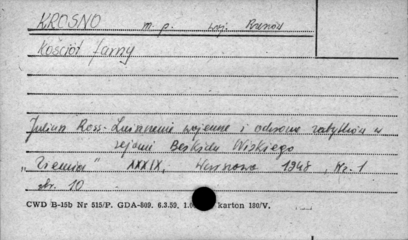 KROSNO m. p. woj. Rzeszów
Kościół farny
Julian Ross - Zniszczenie wojenne i odnowa zabytków w
rejonie Beskidu Niskiego
„Ziemia" XXXIX, Warszawa 1948, Nr. 1
str. 10
CWD B-15b Nr 515/P. GDA-809. 6.3.59. karton 180/V.